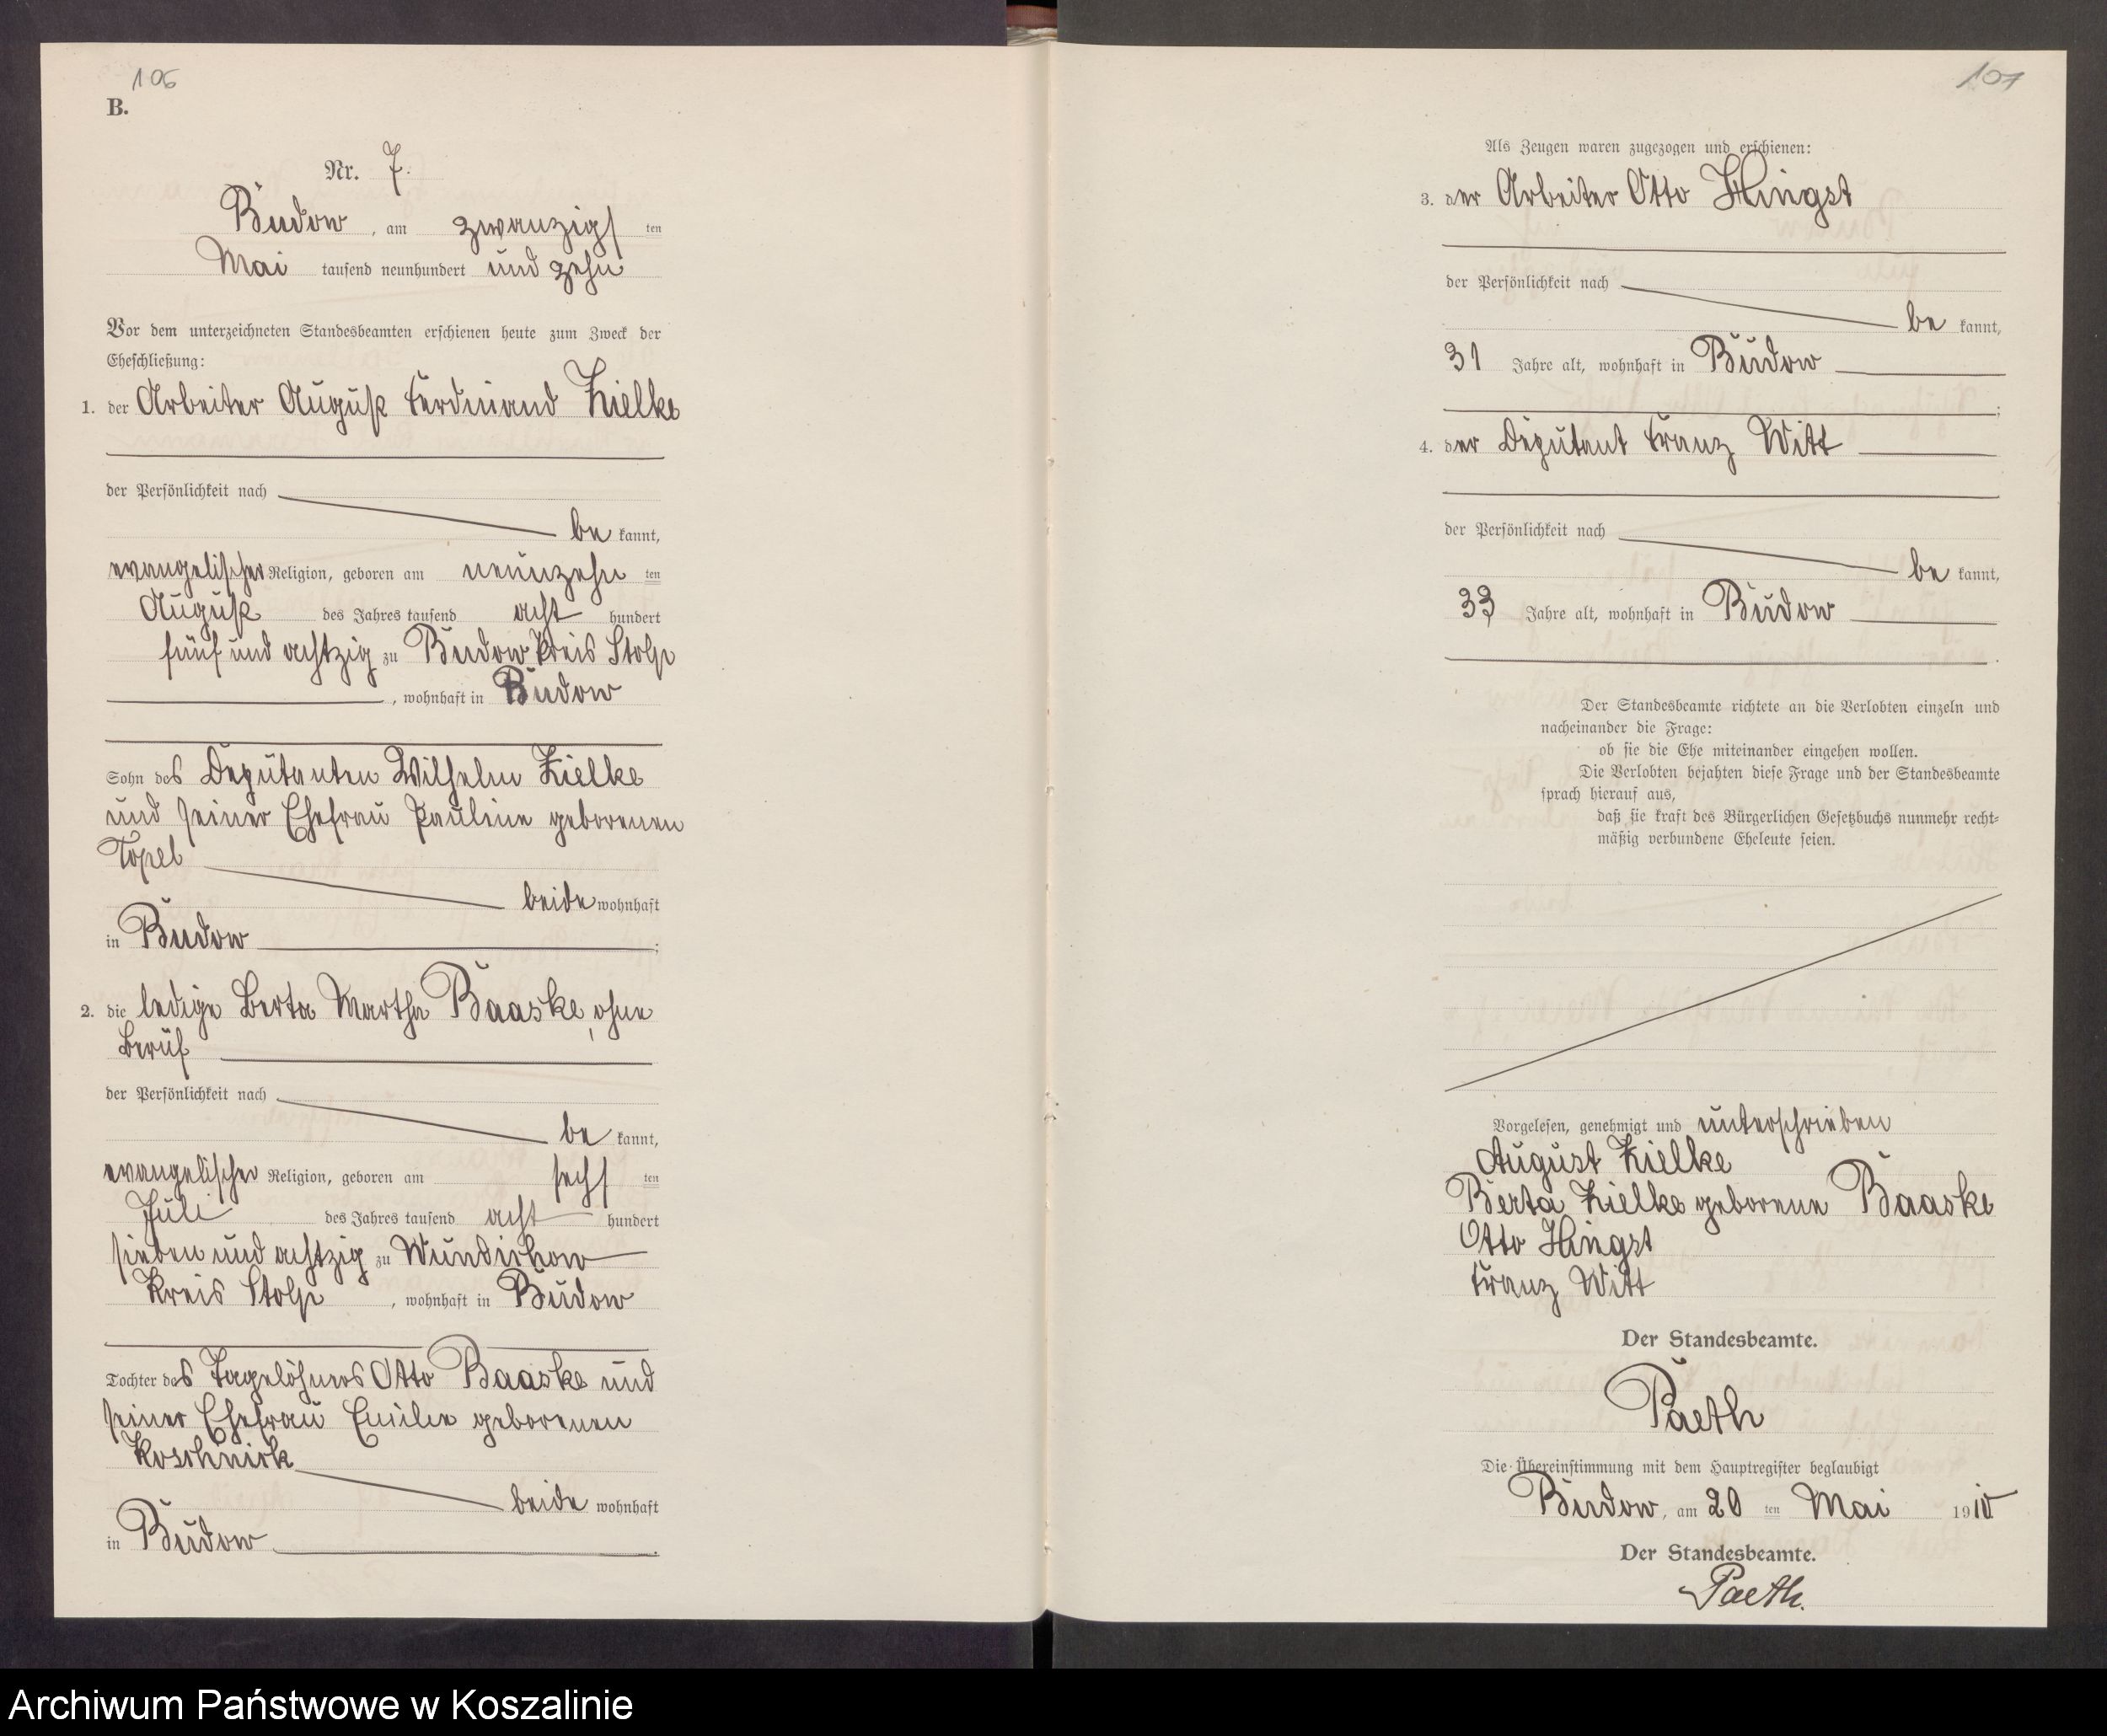 106
B.
Nr. 7.
Budow, am zwanzigsten
Mai tausend neunhundert und zehn
Vor dem unterzeichneten Standesbeamten erschienen heute zum Zweck der
Eheschließung:
1. der Arbeiter August Ferdinand Zielke
der Persönlichkeit nach
be kannt,
evangelischer Religion, geboren am neunzehn ten
August des Jahres tausend acht hundert
fünf und achtzig zu Budow Kreis Stolp
, wohnhaft in Budow
Sohn des Deputanten Wilhelm Zielke
und seiner Ehefrau Pauline geborenen
Topel
beide wohnhaft
in Budow ;
2. die ledige Berta Martha Baaske, ohne
Beruf
der Persönlichkeit nach
be kannt,
evangelischer Religion, geboren am sechs ten
Juli des Jahres tausend acht hundert
sieben und achtzig zu Wundichow
Kreis Stolp , wohnhaft in Budow
Tochter des Tagelöhners Otto Baaske und
seiner Ehefrau Emilie geborenen
Koschnick
beide wohnhaft
in Budow .
107
Als Zeugen waren zugezogen und erschienen:
3. der Arbeiter Otto Hingst
der Persönlichkeit nach
be kannt,
31 Jahre alt, wohnhaft in Budow
;
4. der Deputant Franz Witt
der Persönlichkeit nach
be kannt,
33 Jahre alt, wohnhaft in Budow
.
Der Standesbeamte richtete an die Verlobten einzeln und
nacheinander die Frage:
ob sie die Ehe miteinander eingehen wollen.
Die Verlobten bejahten diese Frage und der Standesbeamte
sprach hierauf aus,
daß sie kraft des Bürgerlichen Gesetzbuchs nunmehr recht-
mäßig verbundene Eheleute seien.
Vorgelesen, genehmigt und unterschrieben
August Zielke
Berta Zielke geborene Baaske
Otto Hingst
Franz Witt
Der Standesbeamte.
Paeth
Die Übereinstimmung mit dem Hauptregister beglaubigt
Budow, am 20 ten Mai 1910
Der Standesbeamte.
Paeth.
Archiwum Państwowe w Koszalinie